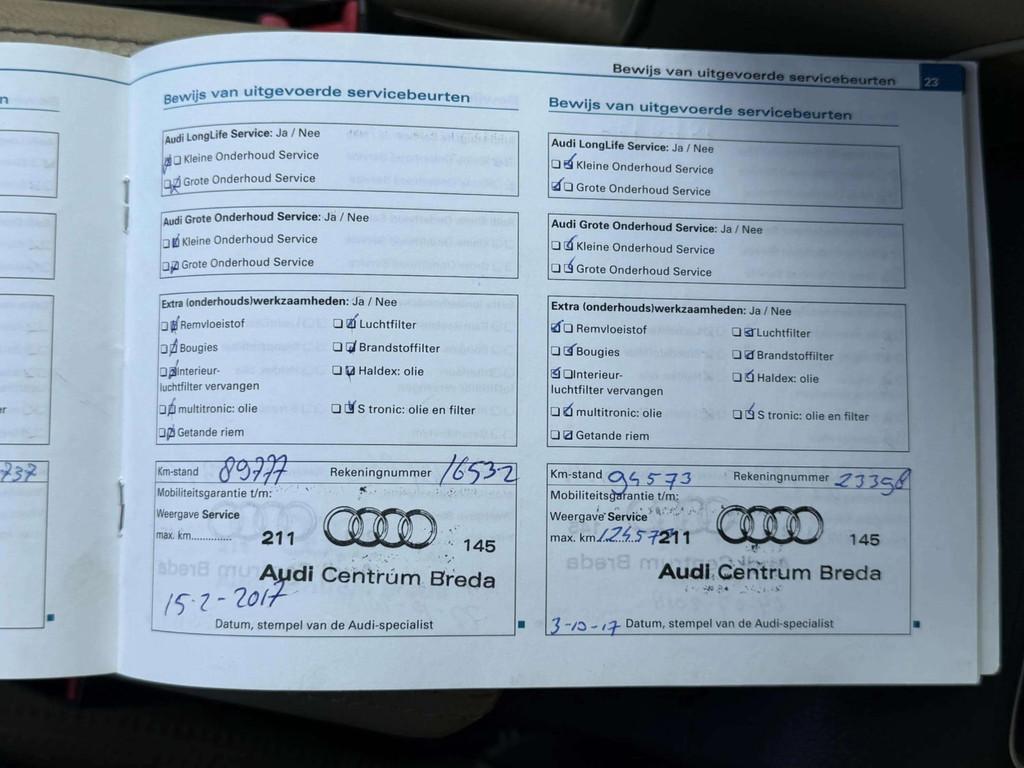 Bewijs van uitgevoerde servicebeurten 23
n
r
737
Bewijs van uitgevoerde servicebeurten
Audi LongLife Service: Ja / Nee
Kleine Onderhoud Service
Grote Onderhoud Service
Audi Grote Onderhoud Service: Ja / Nee
Kleine Onderhoud Service
Grote Onderhoud Service
Extra (onderhouds)werkzaamheden: Ja / Nee
Remvloeistof Luchtfilter
Bougies Brandstoffilter
Interieur- Haldex: olie
luchtfilter vervangen
multitronic: olie S tronic: olie en filter
Getande riem
Km-stand 89777 Rekeningnummer 16532
Mobiliteitsgarantie t/m:
Weergave Service
max. km............ 211 145
Audi Centrum Breda
15-2-2017
Datum, stempel van de Audi-specialist
Bewijs van uitgevoerde servicebeurten
Audi LongLife Service: Ja / Nee
Kleine Onderhoud Service
Grote Onderhoud Service
Audi Grote Onderhoud Service: Ja / Nee
Kleine Onderhoud Service
Grote Onderhoud Service
Extra (onderhouds)werkzaamheden: Ja / Nee
Remvloeistof Luchtfilter
Bougies Brandstoffilter
Interieur- Haldex: olie
luchtfilter vervangen
multitronic: olie S tronic: olie en filter
Getande riem
Km-stand 94573 Rekeningnummer 23358
Mobiliteitsgarantie t/m:
Weergave Service
max. km 211 145
Audi Centrum Breda
3-10-17 Datum, stempel van de Audi-specialist